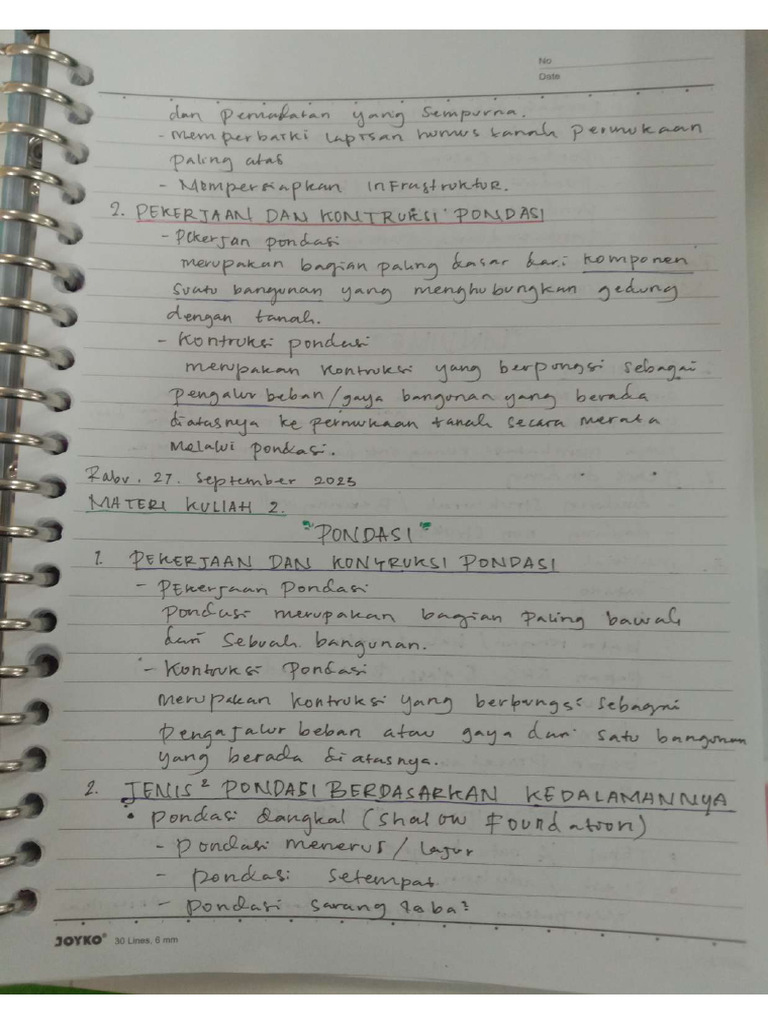 No
Date
dan pemadatan yang sempurna.
- Memperbaiki lapisan humus tanah permukaan
paling atas
- Mempersiapkan infrastruktur.
2. PEKERJAAN DAN KONTRUKSI PONDASI
- Pekerjan pondasi
merupakan bagian paling dasar dari komponen
suatu bangunan yang menghubungkan gedung
dengan tanah.
- Kontruksi pondasi
merupakan kontruksi yang berpungsi sebagai
pengalur beban/gaya bangunan yang berada
diatasnya ke permukaan tanah secara merata
melalui pondasi.
Rabu, 27. September 2023
MATERI KULIAH 2.
"PONDASI"
1. PEKERJAAN DAN KONTRUKSI PONDASI
- PEkerjaan Pondasi
Pondasi merupakan bagian paling bawah
dari sebuah bangunan.
- Kontruksi Pondasi
merupakan kontruksi yang berpungsi sebagai
pengajalur beban atau gaya dari satu bangunan
yang berada diatasnya.
2. JENIS² PONDASI BERDASARKAN KEDALAMANNYA
• Pondasi dangkal (Shalow Foundation)
- Pondasi menerus / Lajur
- pondasi setempat
- Pondasi sarang laba²
JOYKO® 30 Lines, 6 mm